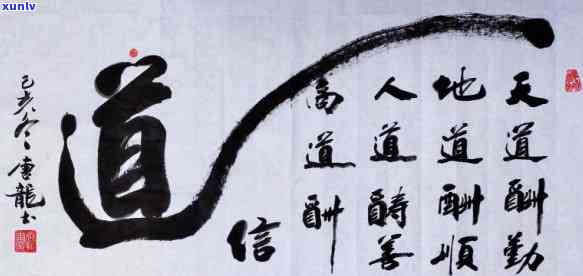 xunlv
天道酬勤
地道酬順
人道醻善
商道酬
信
道
己亥冬唐龍书